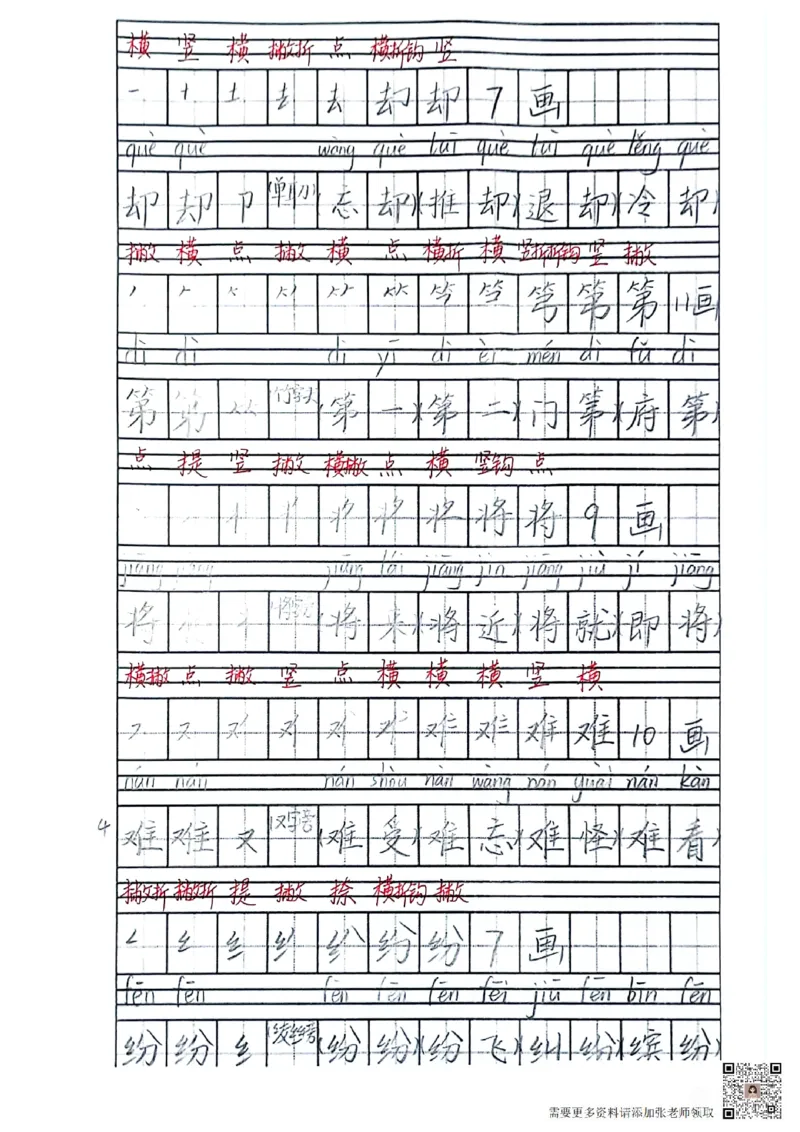 横 竖 横 撇折 点 横折钩 竖
去 却 却 7 画
què què wàng què tuī què tuì què lěng què
却 却 卩 (单耳刀) (忘 却) (推 却) (退 却) (冷 却)
撇 横 点 撇 横 点 横折 横 竖折折钩 竖 撇
第 第 11画
dì dì dì yī dì èr mén dì fǔ dì
第 第 (竹字头) (第 一) (第 二) (门 第) (府 第)
点 提 竖 撇 横撇 点 横 竖钩 点
将 将 9 画
jiāng jiāng jiāng lái jiāng jìn jiāng jiù jí jiāng
将 (将 来) (将 近) (将 就) (即 将)
横撇 点 撇 竖 点 横 横 横 竖 横
又 难 难 10 画
nán nán nán shòu nán wàng nán guài nán kàn
4 难 难 又 (又字旁) (难 受) (难 忘) (难 怪) (难 看)
撇折 撇折 提 撇 捺 横折钩 撇
纟 纷 纷 7 画
fēn fēn fēn fēn fēn fēi jiū fēn bīn fēn
纷 纷 纟 (绞丝旁) (纷 纷) (纷 飞) (纠 纷) (缤 纷)
需要更多资料请添加张老师领取